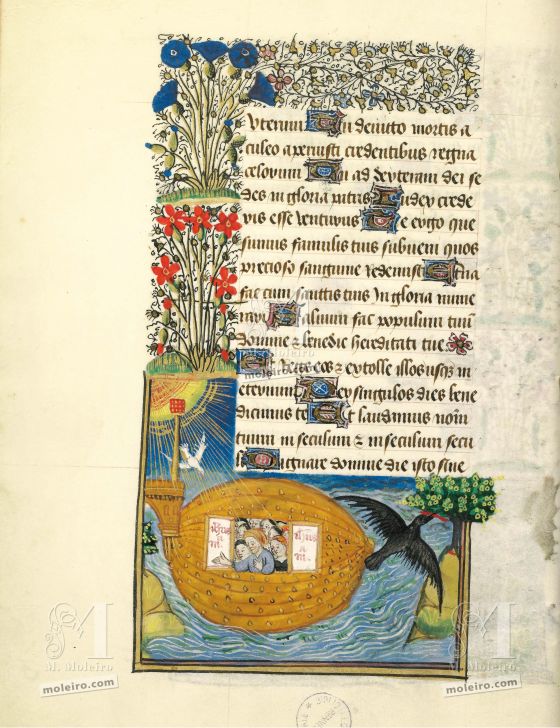 Vterum Tu deuicto mortis a
culeo aperuisti credentibus regna
celorum Tu ad dexteram dei se
des in gloria patris Iudex crede
ris esse venturus Te ergo que
sumus famulis tuis subueni quos
precioso sanguine redemisti Et̾na
fac cum sanctis tuis In gloria nume
rari Saluum fac populum tuū
domine & benedic hereditati tue
Et Rege eos & extolle illos usq̢ in
eternum Per singulos dies bene
dicimus te Et laudamus nomē
tuum in seculum & in seculum secu
li Dignare domine die isto sine
M. Moleiro
moleiro.com
M. Moleiro
moleiro.com
M. Moleiro
moleiro.com